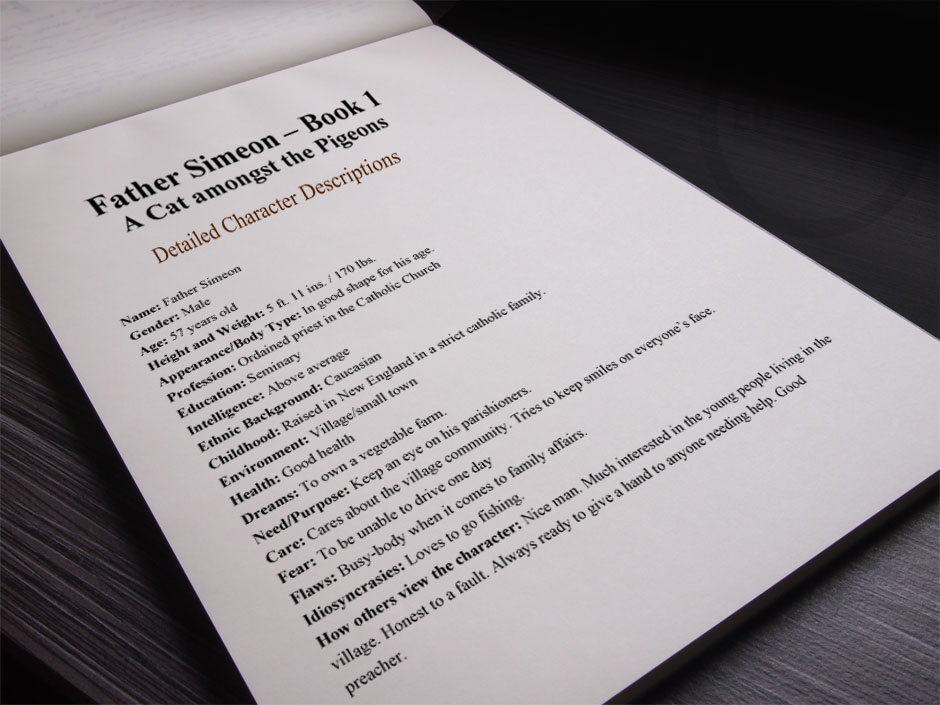 Father Simeon – Book 1
A Cat amongst the Pigeons
Detailed Character Descriptions
Name: Father Simeon
Gender: Male
Age: 57 years old
Height and Weight: 5 ft. 11 ins. / 170 lbs.
Appearance/Body Type: In good shape for his age.
Profession: Ordained priest in the Catholic Church
Education: Seminary
Intelligence: Above average
Ethnic Background: Caucasian
Childhood: Raised in New England in a strict catholic family.
Environment: Village/small town
Health: Good health
Dreams: To own a vegetable farm.
Need/Purpose: Keep an eye on his parishioners.
Care: Cares about the village community. Tries to keep smiles on everyone’s face.
Fear: To be unable to drive one day
Flaws: Busy-body when it comes to family affairs.
Idiosyncrasies: Loves to go fishing.
How others view the character: Nice man. Much interested in the young people living in the
village. Honest to a fault. Always ready to give a hand to anyone needing help. Good
preacher.